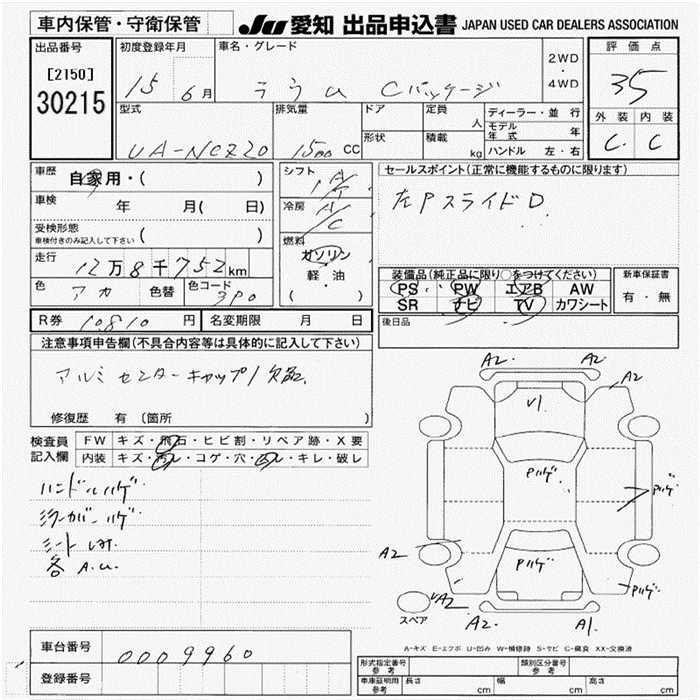 車内保管・守衛保管 JU 愛知 出品申込書 JAPAN USED CAR DEALERS ASSOCIATION
出品番号 初度登録年月 車名・グレード 2WD・4WD 評価点
[2150] 15 6月 ラウム Cパッケージ 35
30215 型式 排気量 ドア 定員 人 ディーラー・並行 外装 内装
UA-NCZ20 1500 CC 形状 積載 kg モデル年式 年 C C
ハンドル 左・右
車歴 自家用・( ) シフト A/T セールスポイント(正常に機能するものに限ります)
車検 年 月( 日) 冷房 A/C 左PスライドD
受検形態 ( )
車検付きのみ記入して下さい
燃料 ガソリン 軽・油 ( )
走行 12万8千752km 装備品(純正品に限り○をつけてください) 新車保証書
色 アカ 色替 色コード 3P0 PS PW エアB AW 有・無
SR ナビ TV カワシート
R券 10810円 名変期限 月 日 後日品
注意事項申告欄(不具合内容等は具体的に記入して下さい)
アルミセンターキャップ1欠品
修復歴 有 (箇所 )
検査員記入欄 FW キズ・飛石・ヒビ割・リペア跡・X要
内装 キズ・汚レ・コゲ・穴・凹レ・キレ・破レ
ハンドルハゲ
ミラーカバーハゲ
シート
各 A.U.
A2 A2
A2
V1
Pハゲ Pハゲ
A2 Pハゲ
Pハゲ
スペア A2
A2 A1
A-キズ E-エクボ U-凹み W-補修跡 S-サビ C-腐食 XX-交換済
車台番号 0009960
登録番号
形式指定番号 参考 類別区分番号 参考
車庫証明用 参考 長さ cm 幅 cm 高さ cm